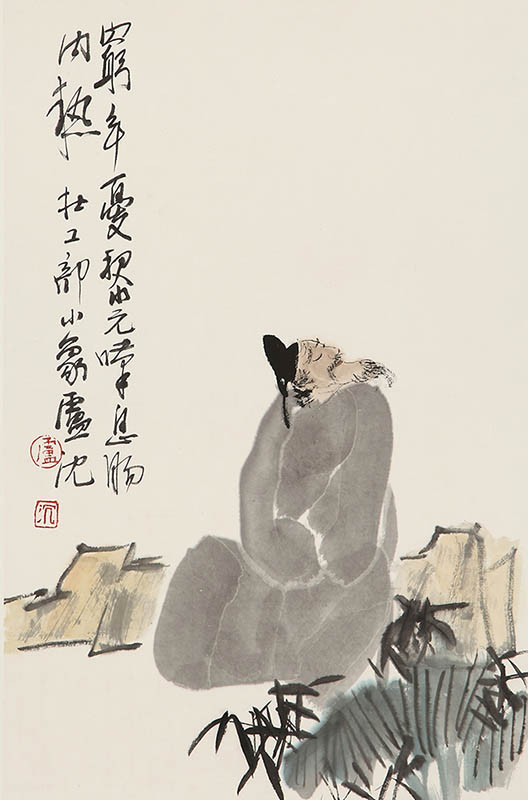 穷年憂黎元嘆息腸
内熱 杜工部小象盧沈
盧
沉